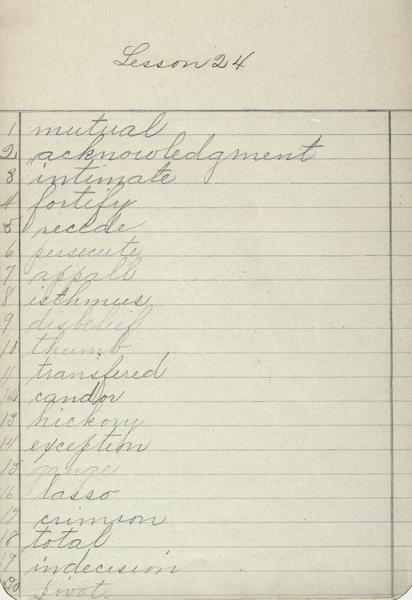 Lesson 24
1 mutual
2 acknowledgment
3 intimate
4 fortify
5 recede
6 persecute
7 appall
8 isthmus
9 disbelief
10 thumb
11 transfered
12 candor
13 hickory
14 exception
15
16 lasso
17 crimson
18 total
19 indecision
20 pivot